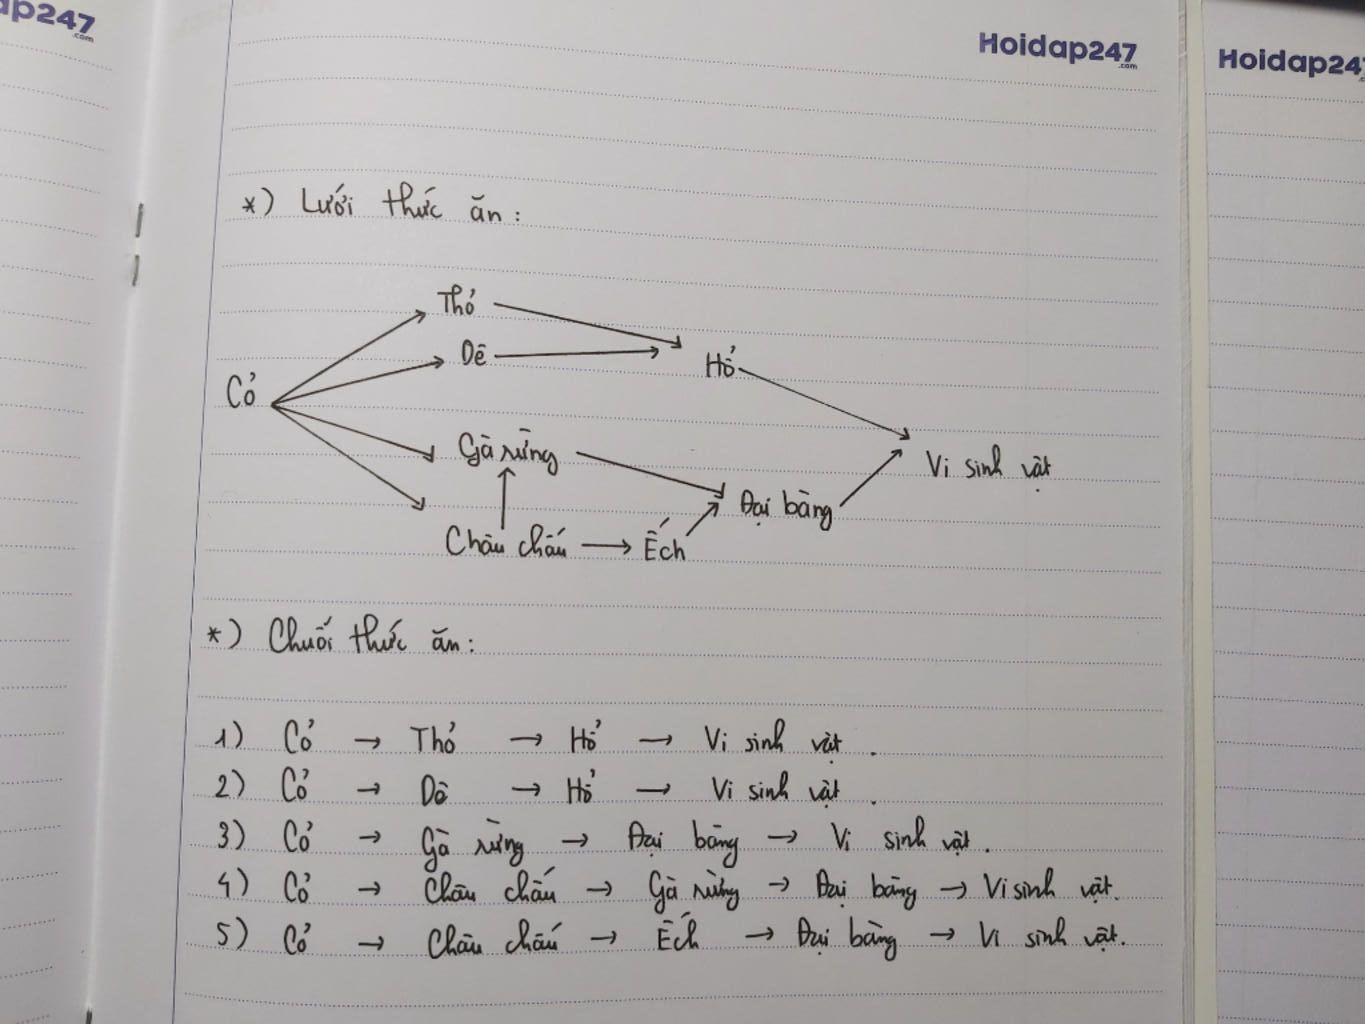 ap247
.com
Hoidap247
.com
Hoidap247
*) Lưới thức ăn :
Thỏ
Dê
Hổ
Cỏ
Gà rừng
Vi sinh vật
Đại bàng
Châu chấu → Ếch
*) Chuỗi thức ăn :
1) Cỏ → Thỏ → Hổ → Vi sinh vật .
2) Cỏ → Dê → Hổ → Vi sinh vật .
3) Cỏ → Gà rừng → Đại bàng → Vi sinh vật .
4) Cỏ → Châu chấu → Gà rừng → Đại bàng → Vi sinh vật .
5) Cỏ → Châu chấu → Ếch → Đại bàng → Vi sinh vật .